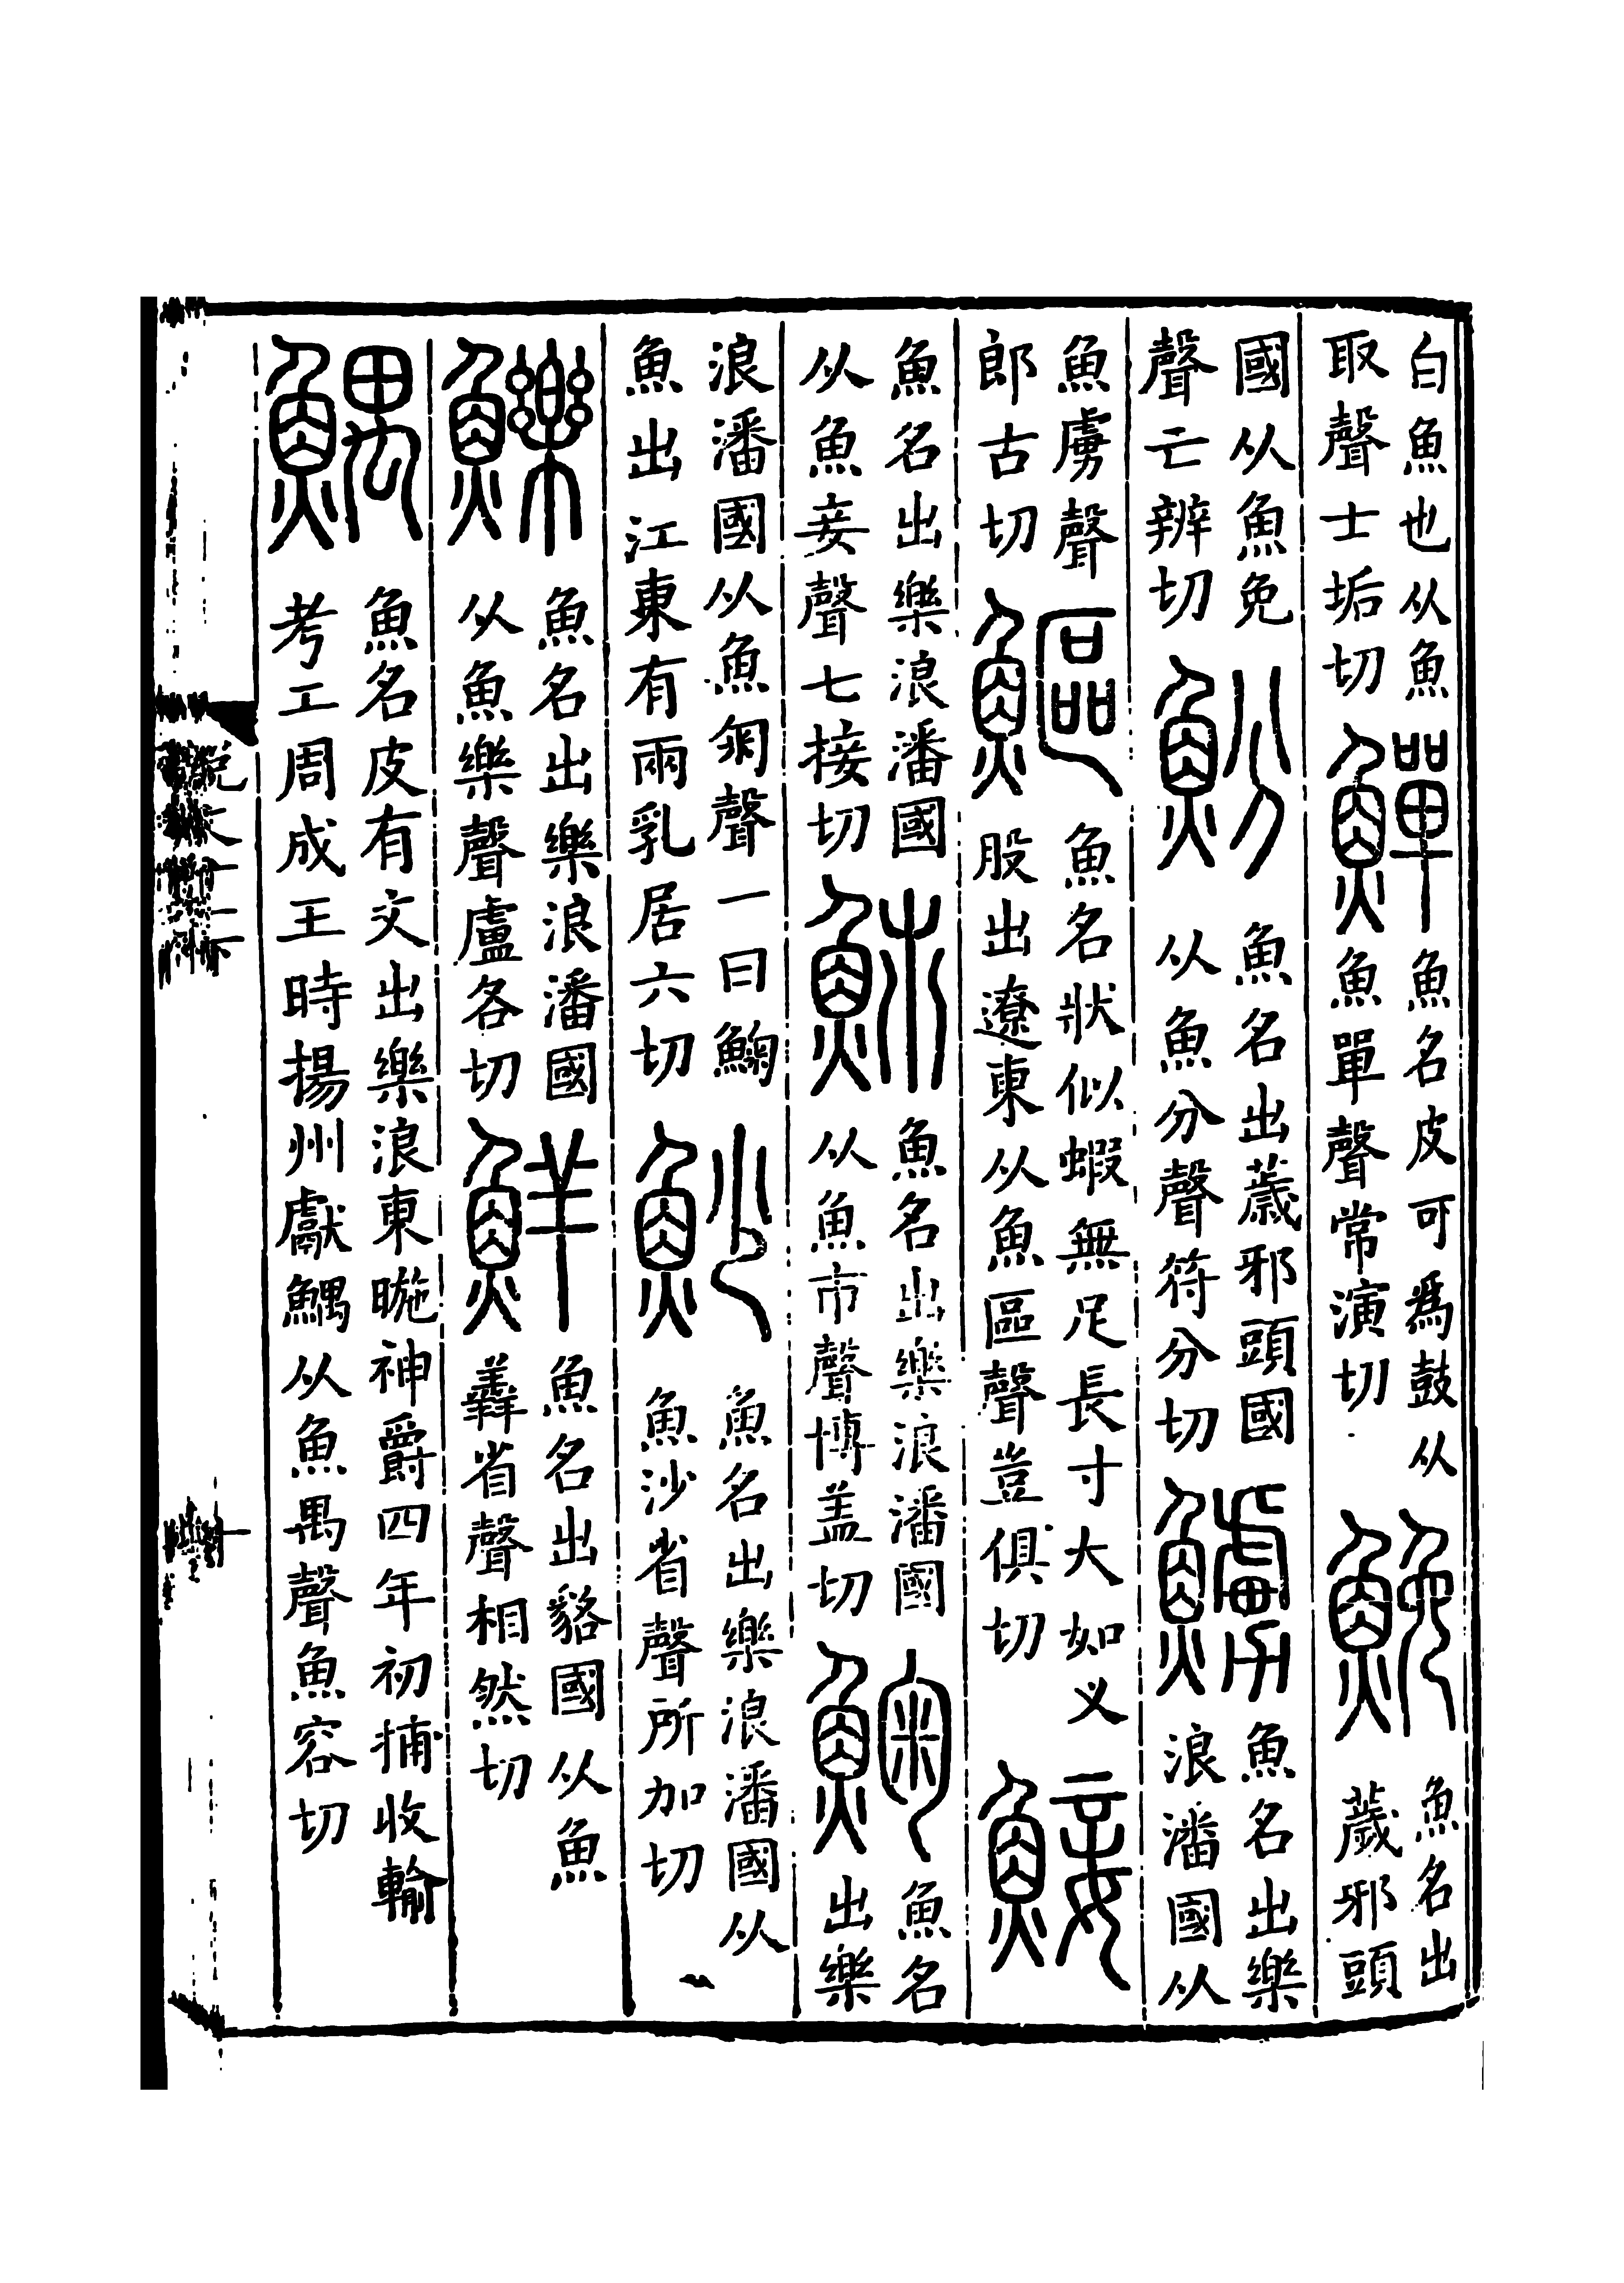 白魚也从魚取聲士垢切 鱓 魚名皮可爲鼓从魚單聲常演切 鮸 魚名出薉邪頭
國从魚免聲亡辨切 魵 魚名出薉邪頭國从魚分聲符分切 䲐 魚名出樂浪潘國从
魚虜聲郎古切 鰸 魚名狀似蝦無足長寸大如乂股出遼東从魚區聲豈俱切 鯜
魚名出樂浪潘國从魚妾聲七接切 䰽 魚名出樂浪潘國从魚巿聲博盖切 䱡 魚名出樂
浪潘國从魚匊聲一曰䱡魚出江東有兩乳居六切 魦 魚名出樂浪潘國从魚沙省聲所加切
鱳 魚名出樂浪潘國从魚樂聲盧各切 鮮 魚名出貉國从魚羴省聲相然切
鰅 魚名皮有文出樂浪東暆神爵四年初捕收輸考工周成王時揚州獻鰅从魚禺聲魚容切
說文十一下